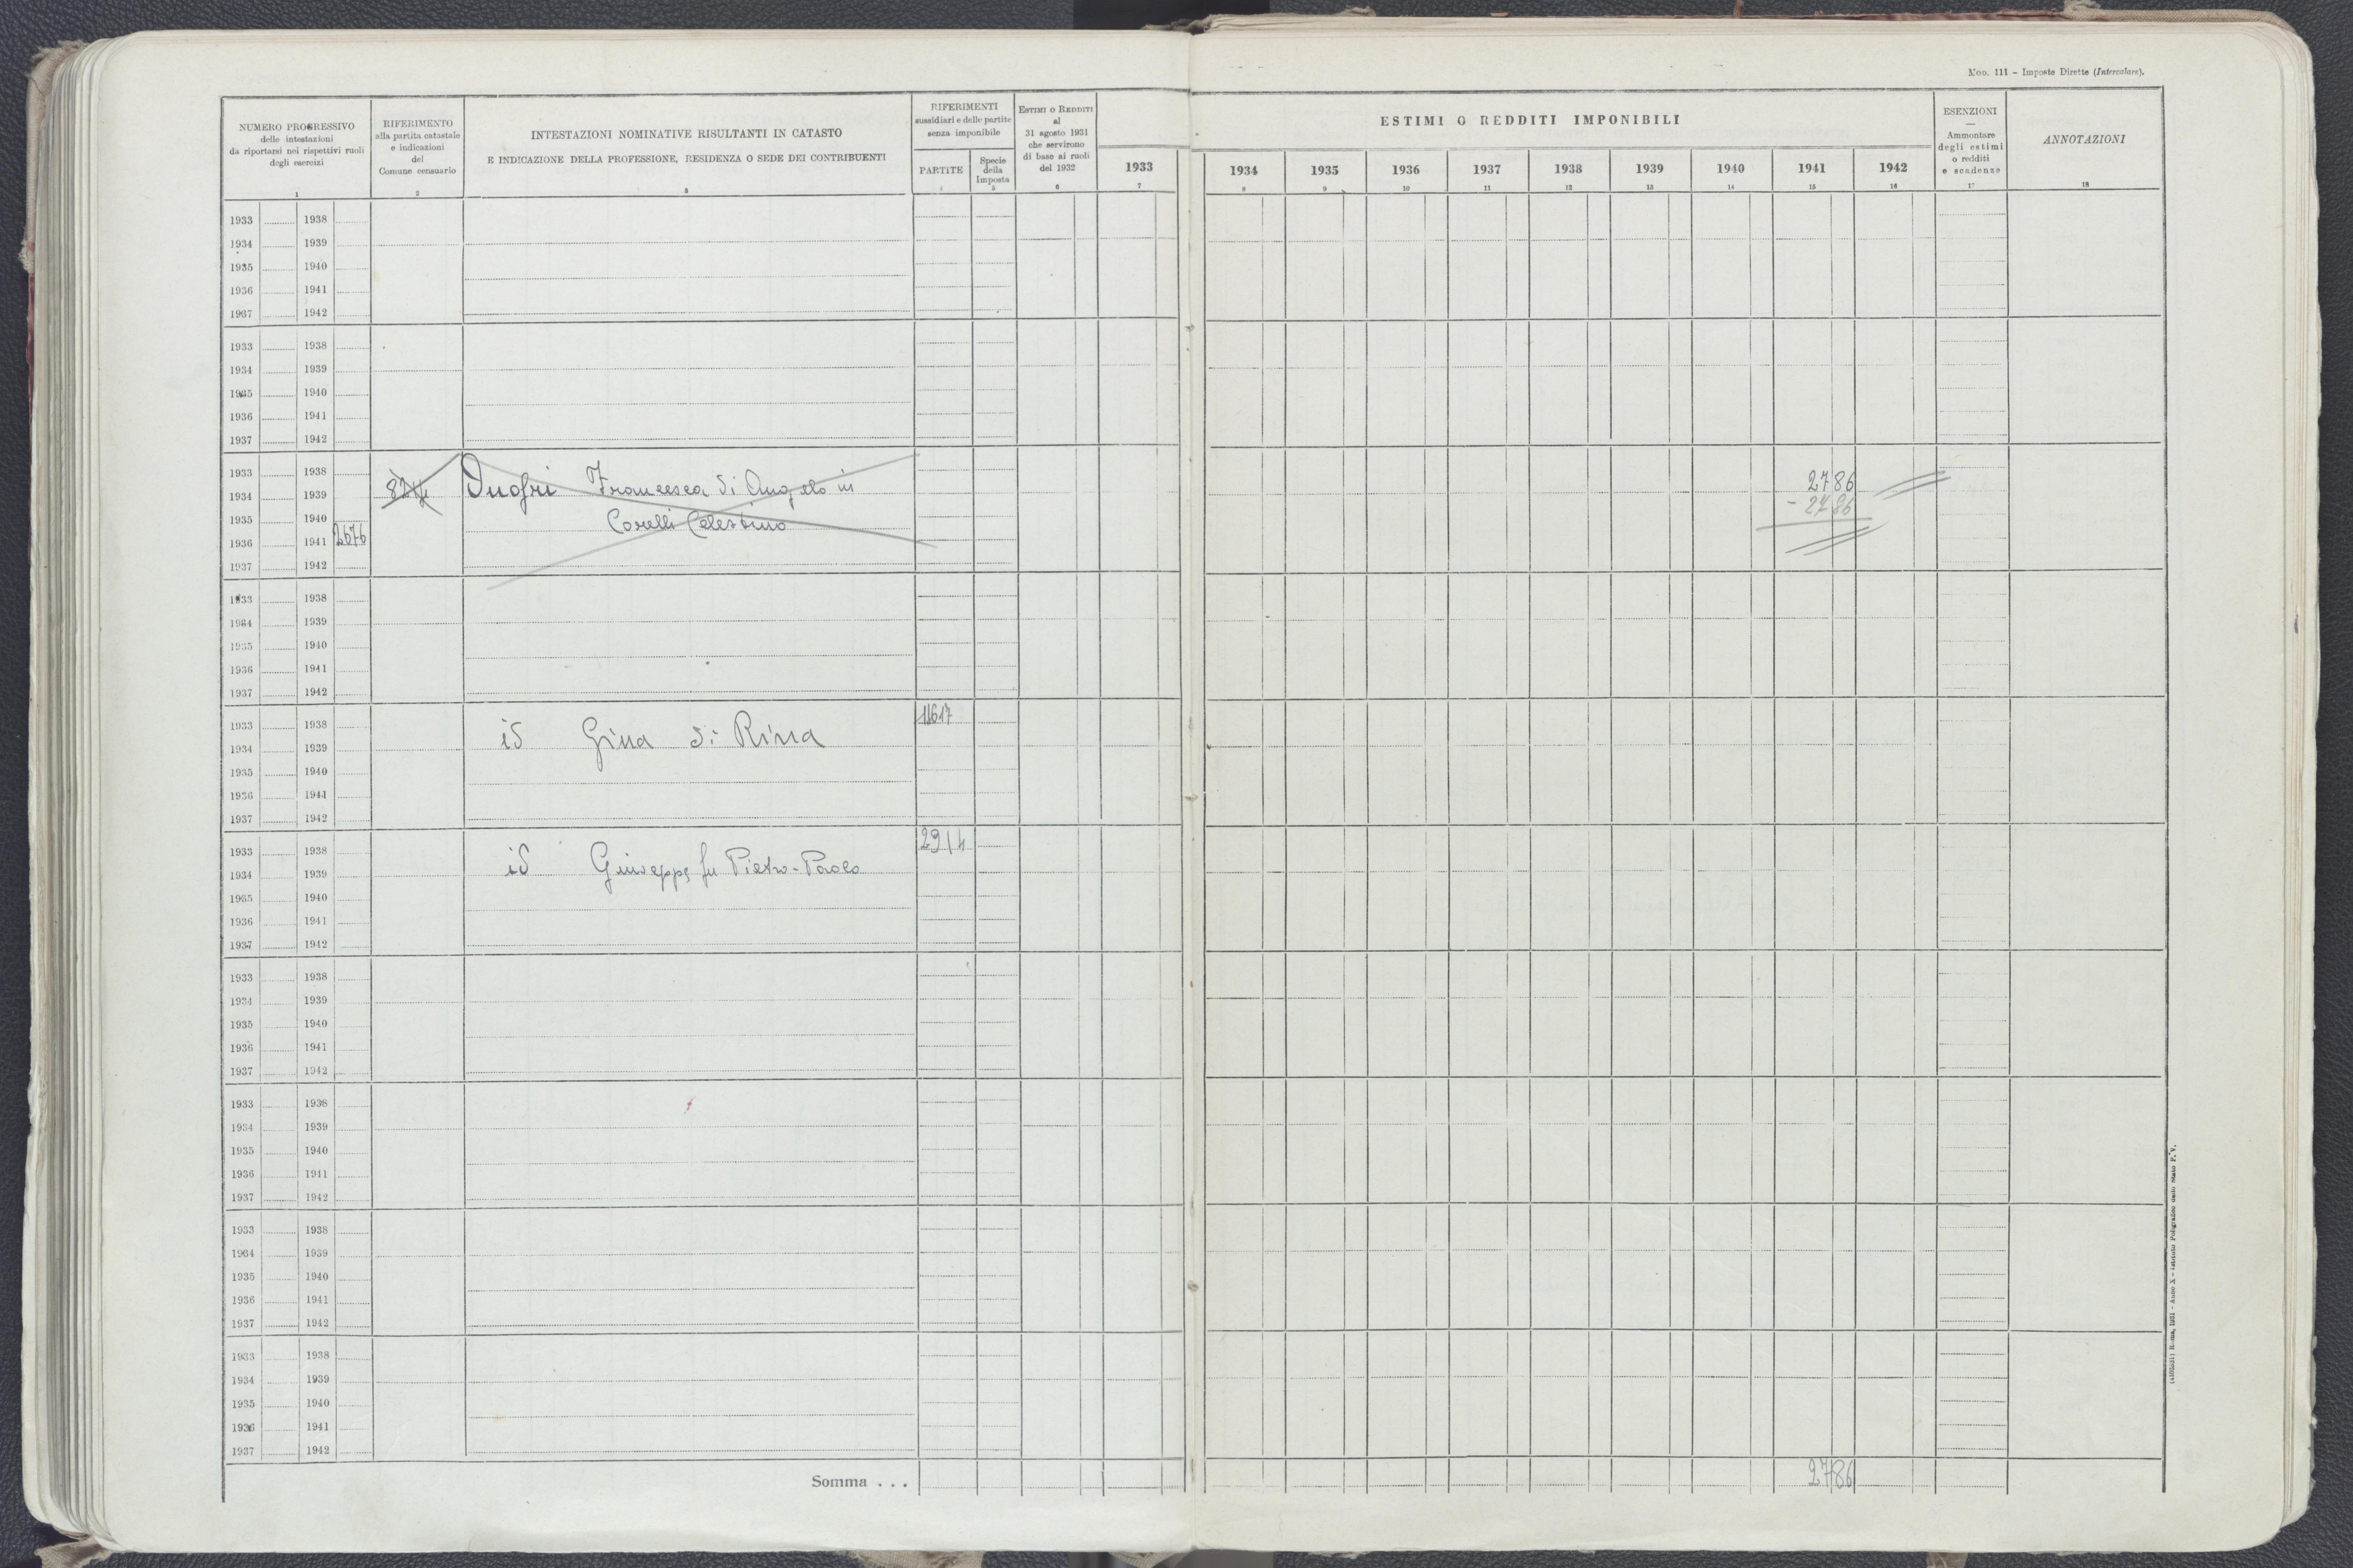 Mod. 111 - Imposte Dirette (Intercalare).
NUMERO PROGRESSIVO
delle intestazioni
da riportarsi nei rispettivi ruoli
degli esercizi
1
RIFERIMENTO
alla partita catastale
e indicazioni
del
Comune censuario
2
INTESTAZIONI NOMINATIVE RISULTANTI IN CATASTO
E INDICAZIONE DELLA PROFESSIONE, RESIDENZA O SEDE DEI CONTRIBUENTI
3
RIFERIMENTI
sussidiari e delle partite
senza imponibile
PARTITE
4
Specie
della
Imposta
5
ESTIMI O REDDITI
al
31 agosto 1931
che servirono
di base ai ruoli
del 1932
6
ESTIMI O REDDITI IMPONIBILI
1933 1934 1935 1936 1937 1938 1939 1940 1941 1942
7 8 9 10 11 12 13 14 15 16
ESENZIONI
Ammontare
degli estimi
o redditi
e scadenze
17
ANNOTAZIONI
18
1933 1938
1934 1939
1935 1940
1936 1941
1937 1942
1933 1938
1934 1939
1935 1940
1936 1941
1937 1942
1933 1938
1934 1939 Onofri Francesca di Angelo in 2786
1935 1940 Corelli Celestino - 2786
1936 1941 2676
1937 1942
1933 1938
1934 1939
1935 1940
1936 1941
1937 1942
1933 1938 11617
1934 1939 id Gina di Rina
1935 1940
1936 1941
1937 1942
1933 1938 2914
1934 1939 id Giuseppe fu Pietro-Paolo
1935 1940
1936 1941
1937 1942
1933 1938
1934 1939
1935 1940
1936 1941
1937 1942
1933 1938
1934 1939
1935 1940
1936 1941
1937 1942
1933 1938
1934 1939
1935 1940
1936 1941
1937 1942
1933 1938
1934 1939
1935 1940
1936 1941
1937 1942
Somma . . . 2786
Roma, 1931 - Anno X - Istituto Poligrafico dello Stato P. V.